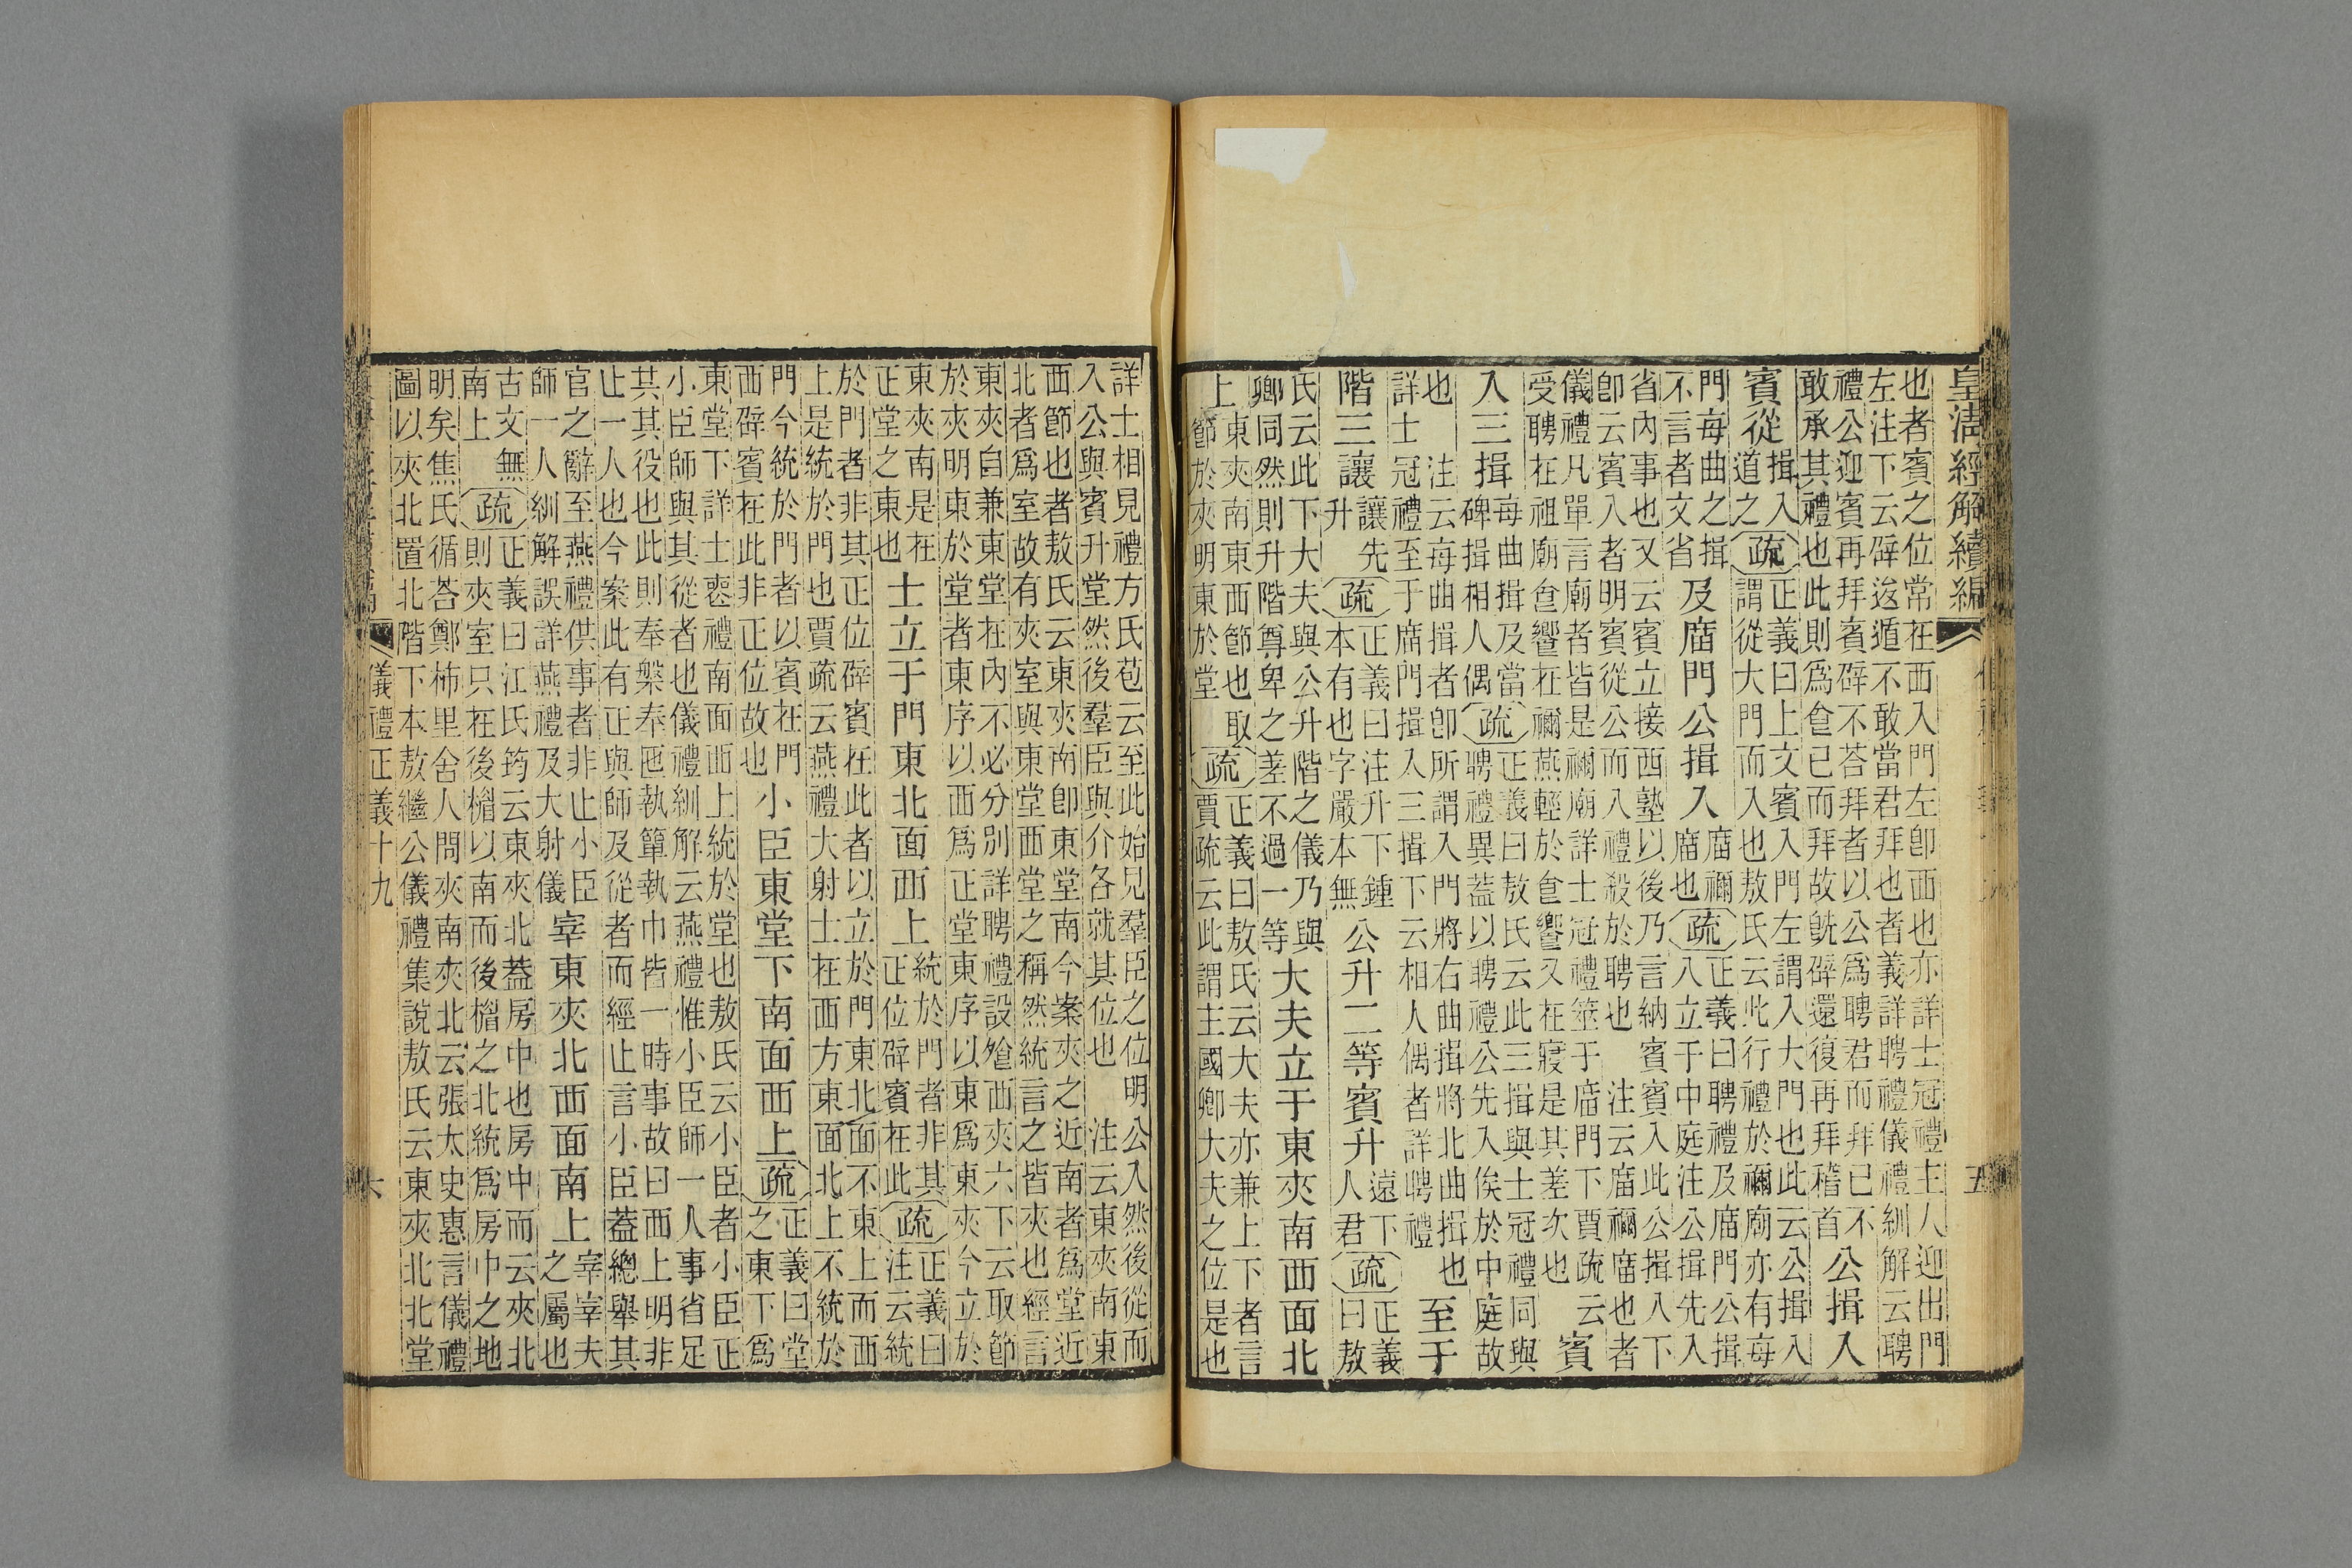 皇清經解續編
五
也者賓之位常在西入門左卽西也亦詳士冠禮主人迎出門
左注下云辟逡遁不敢當君拜也者義詳聘禮儀禮紃解云聘
禮公迎賓再拜賓辟不荅拜者以公爲聘君而拜已不
敢承其禮也此則爲食已而拜故旣辟還復再拜稽首
公揖入
賓從
揖入
道之
疏
正義曰上文賓入門左謂入大門也此云公揖入
謂從大門而入也敖氏云此行禮於禰廟亦有每
門每曲之揖
不言者文省
及庿門公揖入
庿禰
庿也
疏
正義曰聘禮及庿門公揖
入立于中庭注公揖先入
省內事也又云賓立接西塾以後乃言納賓賓入此公揖入下
卽云賓入者明賓從公而入禮殺於聘也　注云庿禰庿也者
儀禮凡單言廟者皆是禰廟詳士冠禮筮于庿門下賈疏云
受聘在祖廟食饗在禰燕輕於食饗又在寢是其差次也
賓
入三揖
每曲揖及當
碑揖相人偶
疏
正義曰敖氏云此三揖與士冠禮同與
聘禮異蓋以聘禮公先入俟於中庭故
也　注云每曲揖者卽所謂入門將右曲揖將北曲揖也
詳士冠禮至于庿門揖入三揖下云相人偶者詳聘禮
至于
階三讓
讓先
升
疏
正義曰注升下鍾
本有也字嚴本無
公升二等賓升
遠下
人君
疏
正義
曰敖
氏云此下大夫與公升階之儀乃與
卿同然則升階尊卑之差不過一等
大夫立于東夾南西面北
上
東夾南東西節也取
節於夾明東於堂
疏
正義曰敖氏云大夫亦兼上下者言
賈疏云此謂主國卿大夫之位是也
詳士相見禮方氏苞云至此始見羣臣之位明公入然後從而
入公與賓升堂然後羣臣與介各就其位也　注云東夾南東
西節也者敖氏云東夾南卽東堂南今案夾之近南者爲堂近
北者爲室故有夾室與東堂西堂之稱然統言之皆夾也經言
東夾自兼東堂在內不必分別詳聘禮設飧西夾六下云取節
於夾明東於堂者東序以西爲正堂東序以東爲東夾今立於
東夾南是在
正堂之東也
士立于門東北面西上
統於門者非其
正位辟賓在此
疏
正義曰
注云統
於門者非其正位辟賓在此者以立於門東北面不東上而西
上是統於門也賈疏云燕禮大射士在西方東面北上不統於
門今統於門者以賓在門
西辟賓在此非正位故也
小臣東堂下南面西上
疏
正義曰堂
之東下爲
東堂下詳士喪禮南面西上統於堂也敖氏云小臣者小臣正
小臣師與其從者也儀禮紃解云燕禮惟小臣師一人事省足
其其役也此則奉槃奉匜執簞執巾皆一時事故曰西上明非
止一人也今案此有正與師及從者而經止言小臣蓋總舉其
官之辭至燕禮供事者非止小臣
師一人紃解誤詳燕禮及大射儀
宰東夾北西面南上
宰宰夫
之屬也
古文無
南上
疏
正義曰江氏筠云東夾北蓋房中也房中而云夾北
則夾室只在後楣以南而後楣之北統爲房中之地
明矣焦氏循荅鄭柿里舍人問夾南夾北云張太史惠言儀禮
圖以夾北置北階下本敖繼公儀禮集說敖氏云東夾北北堂
儀禮正義十九
六